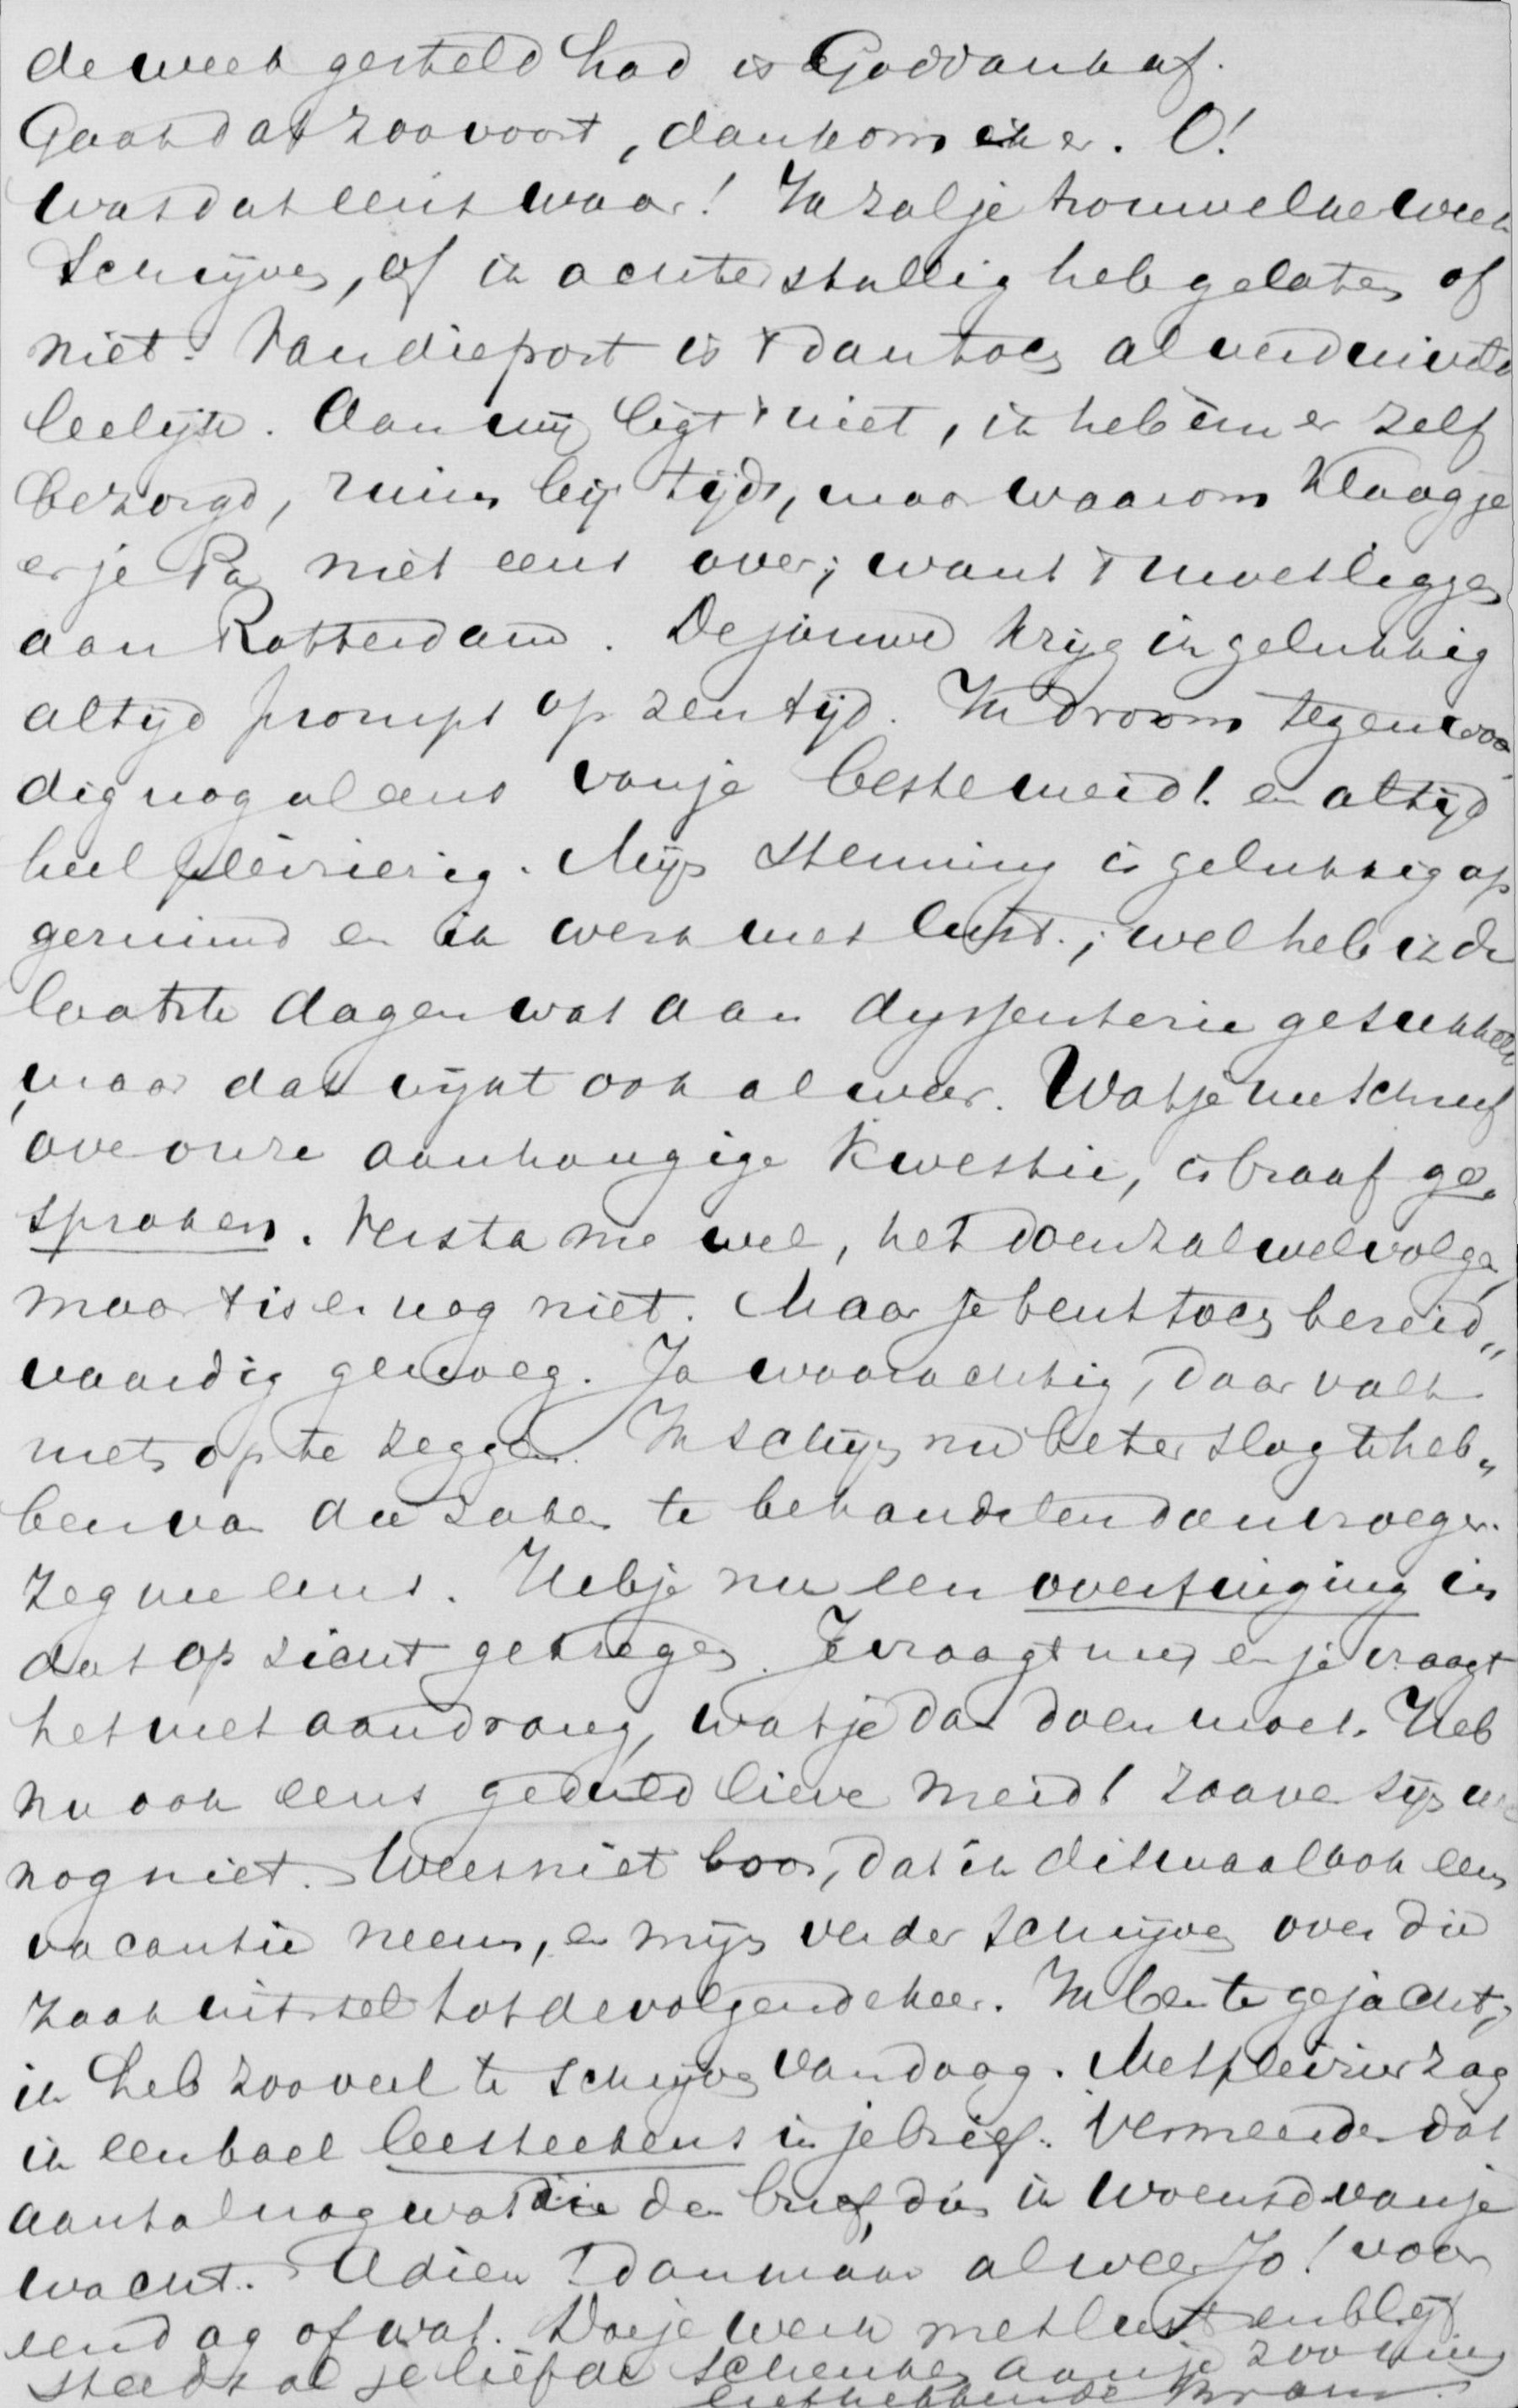 de week gesteld had is Goddank af.
Gaat dat zoo voort, dan kom ik er. O!
was dat eens waar! Ik zal je trouw elke week
schrijven, of ik achterstallig heb gelaten of
niet. Van die post is 't dan toch al verduiveld
leelijk. Aan mij ligt 't niet, ik heb 'em er zelf
bezorgd, ruim bij tijds, maar waarom klaag je
er je Pa niet eens over; want 't moet liggen
aan Rotterdam. De jouwe krijg ik gelukkig
altijd prompt op zen tijd. Ik droom tegenwoor
dig nog al eens van je beste meid! en altijd
heel pleizierig. Mijn stemming is gelukkig op
geruimd en ik werk met lust; wel heb ik de
laatste dagen wat aan dyssenterie gesukkeld
maar dat wijkt ook al weer. Wat je me schreef
over onze aanhangige kwestie, is braaf ge„
sproken. Versta me wel, het doen zal wel volgen,
maar 't is er nog niet. Maar je bent toch bereid„
vaardig genoeg. Ja waarachtig, daar valt
niets op te zeggen. Ik schijn nu beter slag te heb„
ben van die zaken te behandelen dan vroeger.
Zeg me eens. Heb je nu een overtuiging in
dat opzicht gekregen. Je vraagt mij en je vraagt
het met aandrang, wat je dan doen moet. Heb
nu ook eens geduld lieve meid! zoover zijn we
nog niet. Wees niet boos, dat ik ditmaal ook eens
vacantie neem, en mijn verder schrijven over die
zaak uitstel tot de volgende keer. Ik ben te gejacht,
ik heb zooveel te schrijven vandaag. Met pleizier zag
ik een boel leesteekens in je brief. Vermeerder dat
aantal nog wat in den brief, dien ik woensd. van je
wacht. Adieu dan maar alweer Jo! voor
een dag of wat. Doe je werk met lust en blijf
steeds al je liefde schenken aan je zoo innig
liefhebbende Bram